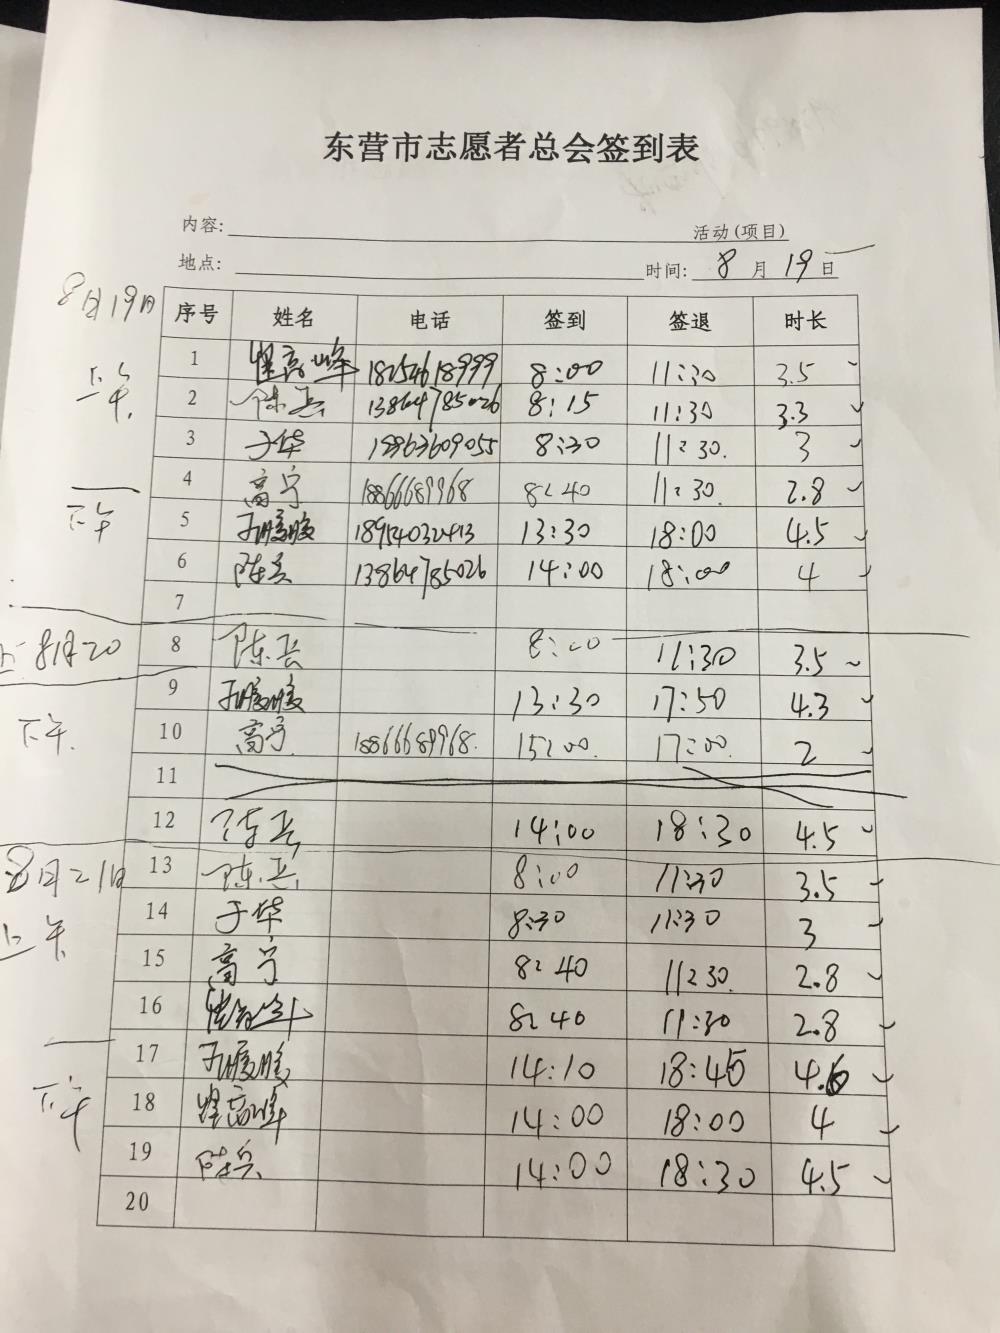 东营市志愿者总会签到表
内容: 活动(项目)
地点: 时间: 8 月 19 日
8月19日
序号 姓名 电话 签到 签退 时长
上午
1 高峰 18254618999 8:00 11:30 3.5
2 陈兵 13864785026 8:15 11:30 3.3
3 于华 18863609055 8:30 11:30. 3
4 高宁 18866689968 8:40 11:30. 2.8
下午
5 18954032413 13:30 18:00 4.5
6 陈兵 13864785026 14:00 18:00 4
7
上 8月20
8 陈兵 8:00 11:30 3.5
9 13:30 17:50 4.3
下午.
10 高宁 18866689968. 15:00. 17:00. 2
11
12 陈兵 14:00 18:30 4.5
8月21日
13 陈兵 8:00 11:30 3.5
上午
14 于华 8:30 11:30 3
15 高宁 8:40 11:30. 2.8
16 8:40 11:30 2.8
17 14:10 18:45 4.6
下午
18 高峰 14:00 18:00 4
19 陈兵 14:00 18:30 4.5
20